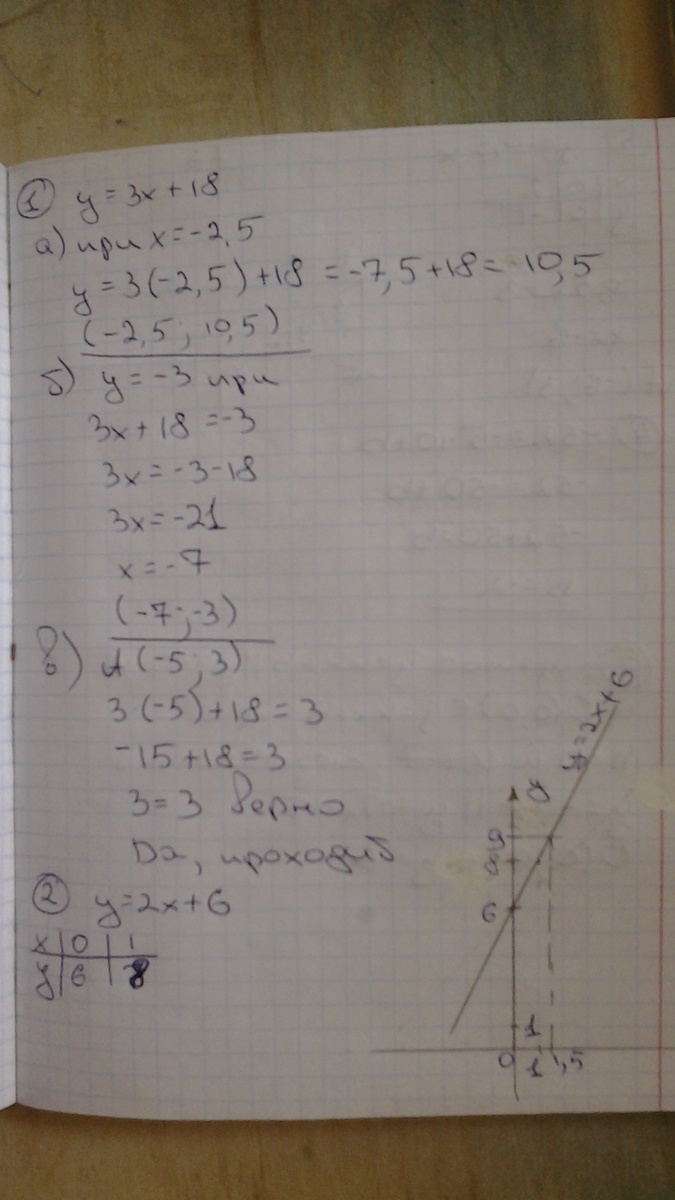 ① y = 3x + 18
а) при x = -2,5
y = 3(-2,5) + 18 = -7,5 + 18 = 10,5
(-2,5; 10,5)
б) y = -3 при
3x + 18 = -3
3x = -3-18
3x = -21
x = -7
(-7; -3)
в) A(-5; 3)
3·(-5) + 18 = 3
-15 + 18 = 3
3 = 3 верно
Да, проходит
② y = 2x + 6
x | 0 | 1
y | 6 | 8
y = 2x + 6
y
9
8
6
1
0 1 1,5